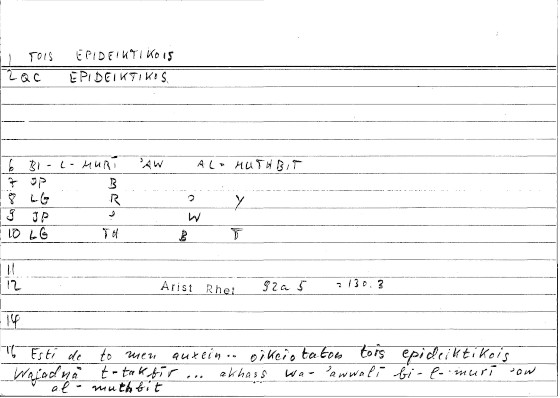 1 TOIS EPIDEIKTIKOIS
2 QC EPIDEIKTIKOS
6 BI-L-MURĪ ʾAW AL-MUTHBIT
7 JP B
8 LG R ʾ Y
9 JP ʾ W
10 LG TH B T
11
12 Arist Rhet 92a 5 =130.3
14
16 Esti de to men auxein.. oikeiotaton tois epideiktikois
Wajadnā t-takbīr ... akhass wa-ʾawwalī bi-l-murī ʾaw
al-muthbit